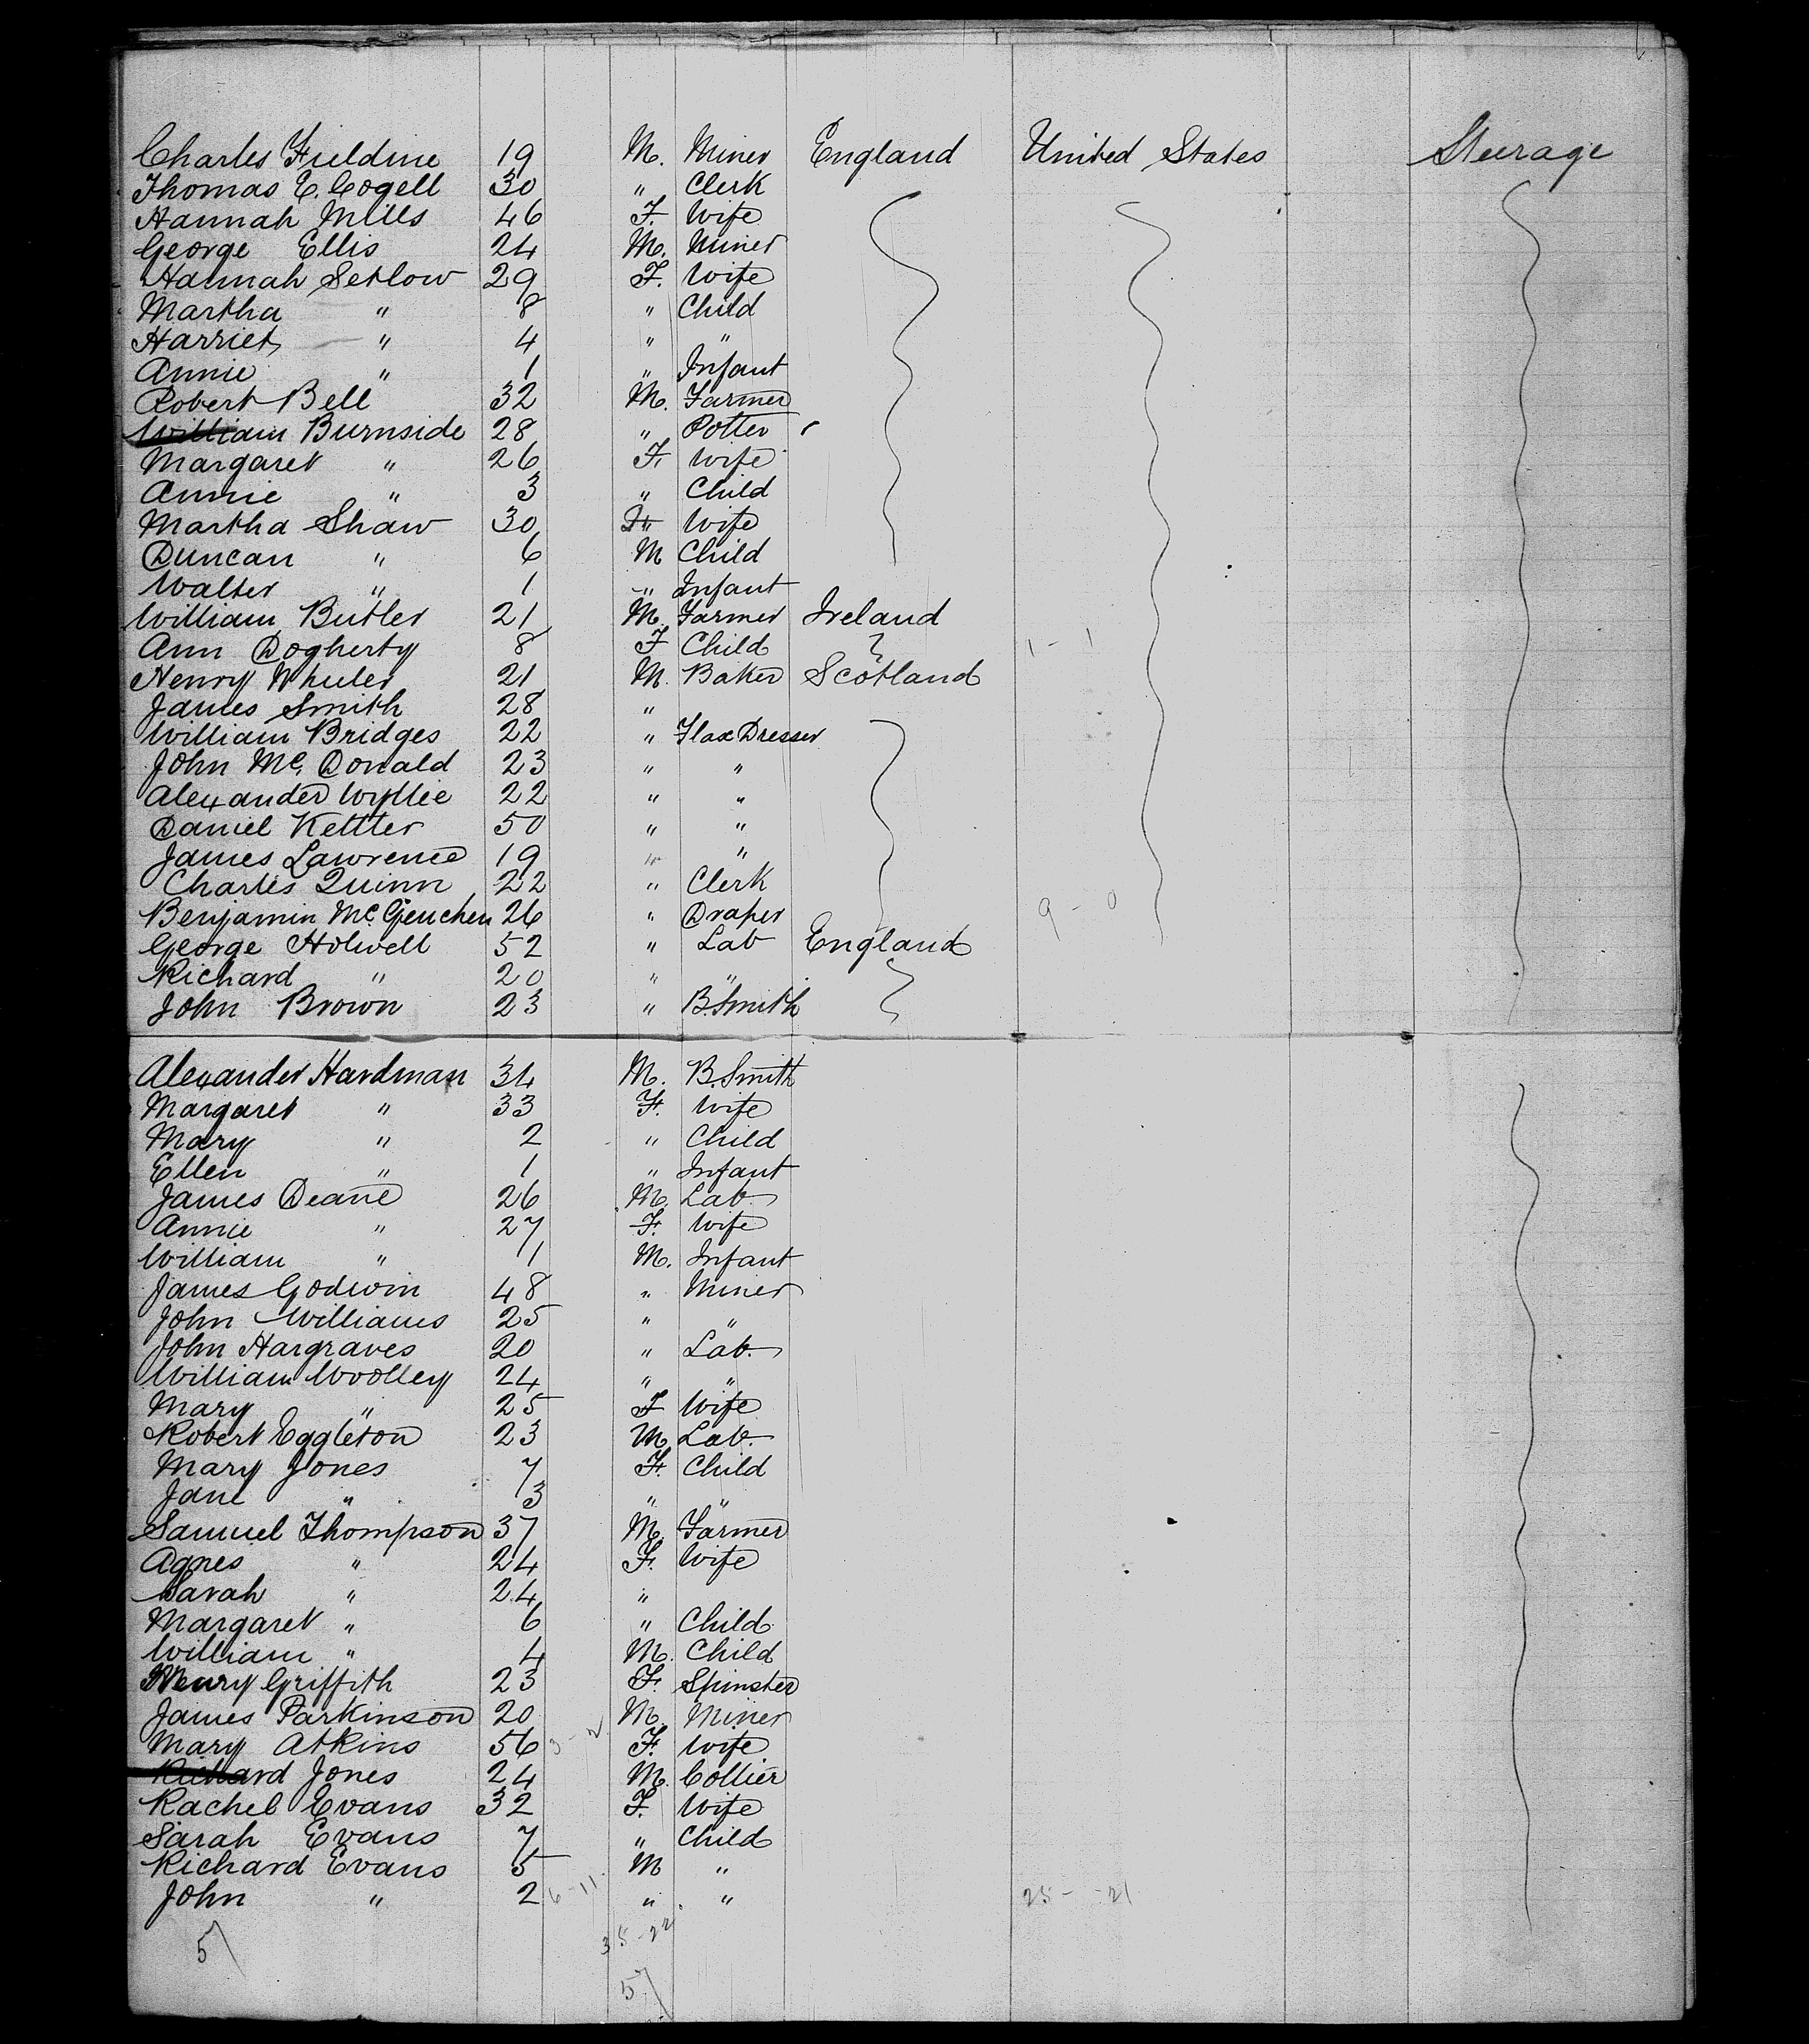 Charles Fieldine 19 M. Miner England United States Steerage
Thomas E. Cogell 30 " Clerk
Hannah Mills 46 F. Wife
George Ellis 24 M. Miner
Hannah Setlow 29 F. Wife
Martha " 8 " Child
Harriet " 4 " "
Annie " 1 " Infant
Robert Bell 32 M. Farmer
William Burnside 28 " Potter
Margaret " 26 F. Wife
Annie " 3 " Child
Martha Shaw 30 F. Wife
Duncan " 6 M Child
Walter " 1 " Infant
William Butler 21 M. Farmer Ireland
Ann Dogherty 8 F Child 1 - 1
Henry Wheeler 21 M. Baker Scotland
James Smith 28 "
William Bridges 22 " Flax Dresser
John Mc. Donald 23 " "
Alexander Wyllie 22 " "
Daniel Kettler 50 " "
James Lawrence 19 " "
Charles Quinn 22 " Clerk
Benjamin Mc. Geuchen 26 " Draper 9 - 0
George Holwell 52 " Lab England
Richard " 20 " "
John Brown 23 " B. Smith
Alexander Hardman 34 M. B. Smith
Margaret " 33 F. Wife
Mary " 2 " Child
Ellen " 1 " Infant
James Deane 26 M. Lab.
Annie " 27 F. Wife
William " 1 M. Infant
James Godwin 48 " Miner
John Williams 25 " "
John Hargraves 20 " Lab.
William Woolley 24 " "
Mary " 25 F Wife
Robert Eggleton 23 M Lab.
Mary Jones 7 F. Child
Jane " 3 " "
Samuel Thompson 37 M. Farmer
Agnes " 24 F. Wife
Sarah " 24 "
Margaret " 6 " Child
William " 4 M. Child
Henry Griffith 23 F. Spinster
James Parkinson 20 M. Miner
Mary Atkins 56 3 - 2 F. Wife
Richard Jones 24 M. Collier
Rachel Evans 32 F. Wife
Sarah Evans 7 " Child
Richard Evans 5 M "
John " 2 6 - 11 " " 25 - 21
35 - 22
57
57